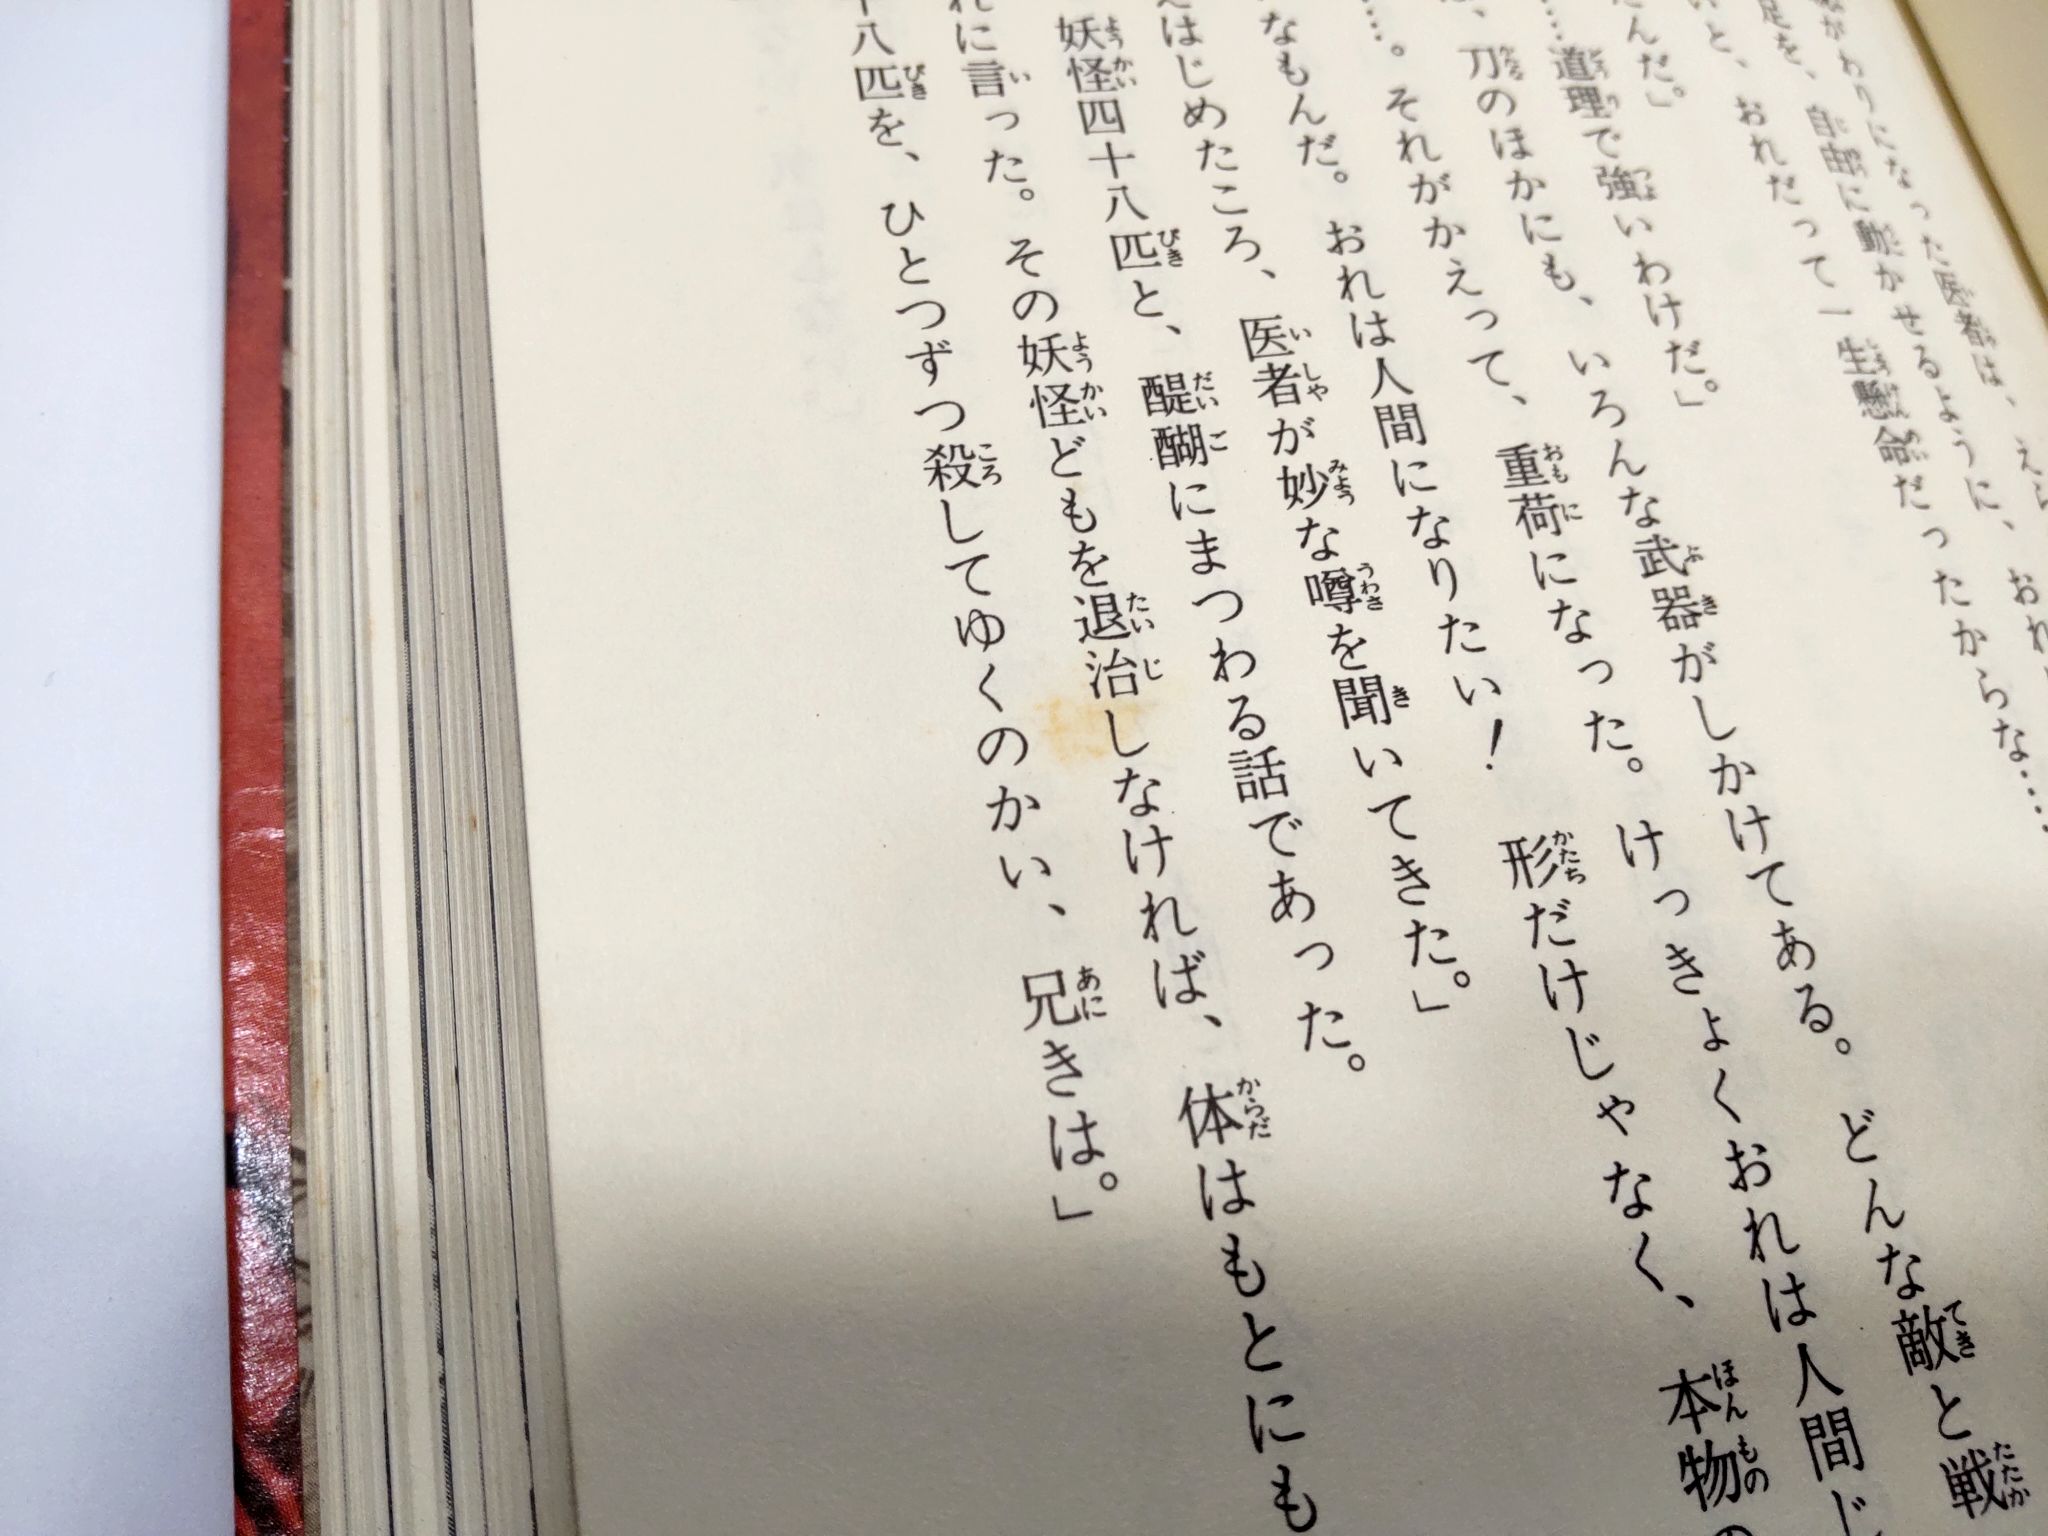 がわりになった医者は、えら
足を、自由に動かせるように、おれ
いと、おれだって一生懸命だったからな……
んだ。」
…道理で強いわけだ。」
、刀のほかにも、いろんな武器がしかけてある。どんな敵と戦
…。それがかえって、重荷になった。けっきょくおれは人間じ
なもんだ。おれは人間になりたい！　形だけじゃなく、本物の
はじめたころ、医者が妙な噂を聞いてきた。」
妖怪四十八匹と、醍醐にまつわる話であった。
れに言った。その妖怪どもを退治しなければ、体はもとにも
十八匹を、ひとつずつ殺してゆくのかい、兄きは。」